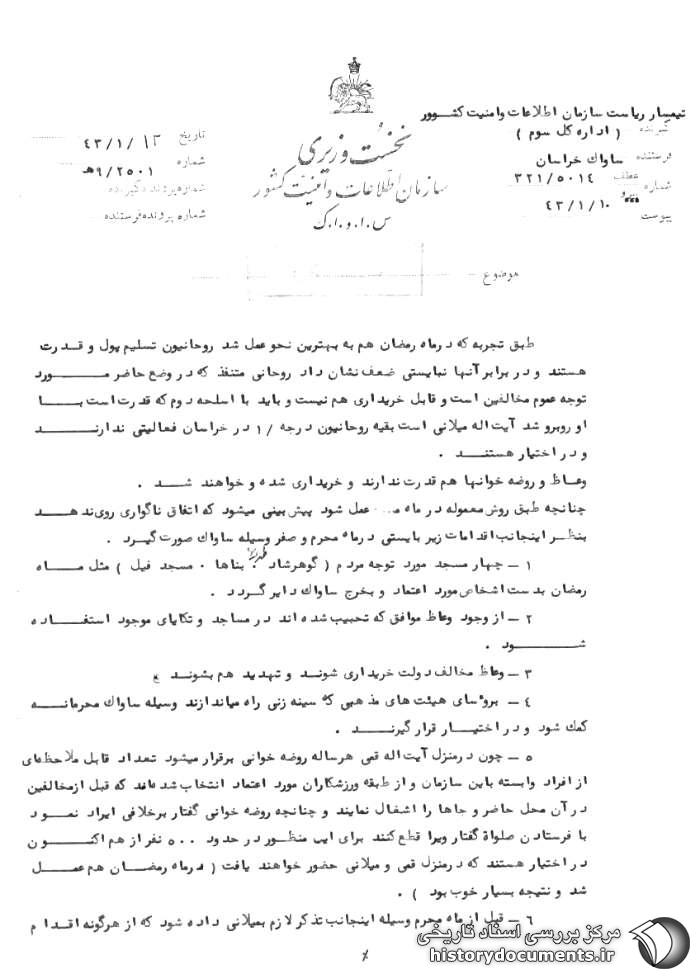 تیمسار ریاست سازمان اطلاعات وامنیت کشـــور
گیرنده ( اداره کل سوم )
فرستنده ساواک خراسان
شماره عطف ۳۲۱/۵۰۱٤
پیرو
٤۳/۱/۱۰
پیوست
نخست وزیری
سازمان اطلاعات و امنیت کشور
س.ا.و.ا.ک
تاریخ ٤۳/۱/۱۳
شماره ۹/۲۵۰۱هـ
شماره پرونده گیرنده
شماره پرونده فرستنده
موضوع
طبق تجربه که درماه رمضان هم به بهترین نحو عمل شد روحانیون تسلیم پول و قــدرت
هستند و در برابر آنها نبایستی ضعف نشان داد روحانی متنفذ که در وضع حاضر مــــورد
توجه عموم مخالفین است و قابل خریداری هم نیست و باید با اسلحه دوم که قدرت است بـــا
او روبرو شد آیت اله میلانی است بقیه روحانیون درجه /۱ در خراسان فعالیتی ندارنـــد
و در اختیار هستنـــد .
وعـاظ و روضه خوانها هم قدرت ندارند و خریداری شده و خواهند شـــد .
چنانچه طبق روش معموله در ماه عمل شود پیش بینی میشود که اتفاق ناگواری روی ندهـــد
بنظـر اینجانب اقدامات زیر بایستی درماه محرم و صفر وسیله ساواک صورت گیرد .
۱ ــ چهار مسجد مورد توجه مردم ( گوهرشاد . بناها . مسجد فیل ) مثل مـــاه
رمضان بدست اشخاص مورد اعتماد و بخرج ساواک دایر گردد .
۲ ــ از وجود وعاظ موافق که تحبیب شده اند در مساجد و تکایای موجود استفـــاده
شـــود .
۳ ــ وعاظ مخالف دولت خریداری شوند و تهدید هم بشوند
٤ ــ بروسای هیئت های مذهبی که سینه زنی راه میاندازند وسیله ساواک محرمانـــه
کمک شود و در اختیـــار قرار گیرنـــد .
۵ ــ چون درمنزل آیت اله قمی هرساله روضه خوانی برقرار میشود تعداد قابل ملاحظه‌ای
از افراد وابسته باین سازمان و از طبقه ورزشکاران مورد اعتماد انتخاب شده‌اند که قبل از مخالفین
در آن محل حاضر و جاها را اشغال نمایند و چنانچه روضه خوانی گفتار برخلافی ایراد نمـــود
با فرستادن صلواة گفتار ویرا قطع کنند برای این منظور در حدود ۵۰۰ نفر از هم اکنـــون
در اختیار هستند که درمنزل قمی و میلانی حضور خواهند یافت ( درماه رمضـــان هم عمـــل
شد و نتیجه بسیار خوب بود ) .
٦ ــ قبل از ماه محرم وسیله اینجانب تذکر لازم بمیلانی داده شود که از هرگونه اقـدام
مرکز بررسی اسناد تاریخی
historydocuments.ir